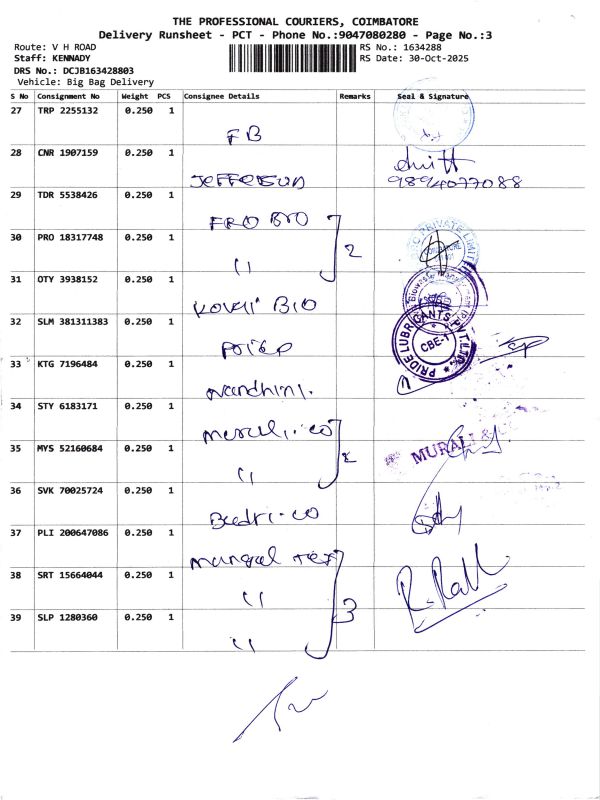 THE PROFESSIONAL COURIERS, COIMBATORE
Delivery Runsheet - PCT - Phone No.:9047080280 - Page No.:3
Route: V H ROAD
RS No.: 1634288
Staff: KENNADY
RS Date: 30-Oct-2025
DRS No.: DCJB163428803
Vehicle: Big Bag Delivery
S No Consignment No Weight PCS Consignee Details Remarks Seal & Signature
27 TRP 2255132 0.250 1
FB
28 CNR 1907159 0.250 1
JEFFERSON
9894077088
29 TDR 5538426 0.250 1
FRO BIO
30 PRO 18317748 0.250 1 2
PRIVATE LIMITED
COIMBATORE
"
31 OTY 3938152 0.250 1
KOVAI BIO
32 SLM 381311383 0.250 1
PRIDE LUBRICANTS PVT LTD
CBE-1
33 KTG 7196484 0.250 1
Nandhini.
34 STY 6183171 0.250 1
murali.co
35 MYS 52160684 0.250 1 2
MURALI &
"
36 SVK 70025724 0.250 1
Badri.co
37 PLI 200647086 0.250 1
mangal tex
38 SRT 15664044 0.250 1
" 3
39 SLP 1280360 0.250 1
"